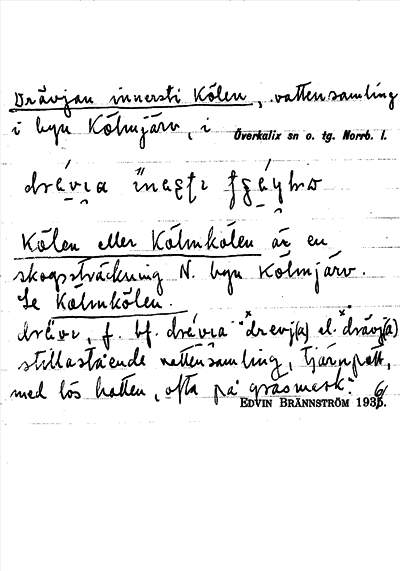 Drävjan innersti Kölen, vattensamling
i byn Kölmjärv, i Överkalix sn o. tg. Norrb. l.
Kölen eller Kölmkölen är en
skogssträckning N. byn Kölmjärv.
Se Kölmkölen.
f. bf. el.
stillastående vattensamling, tjärnpott,
med lös botten, ofta på gräsmark.
EDVIN BRÄNNSTRÖM 1936.